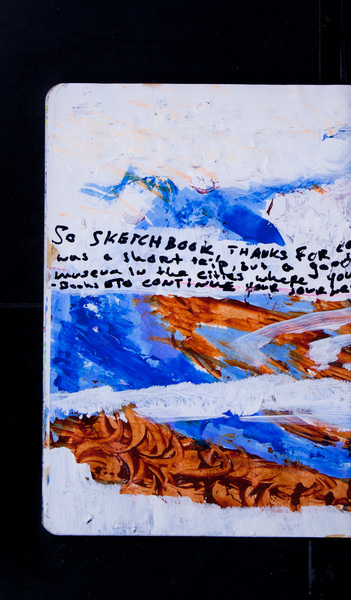 So SKETCHBOOK, THANKS FOR CO
was a short trip, but a good
museum in the cities where you
-Books TO CONTINUE YOUR JOUR